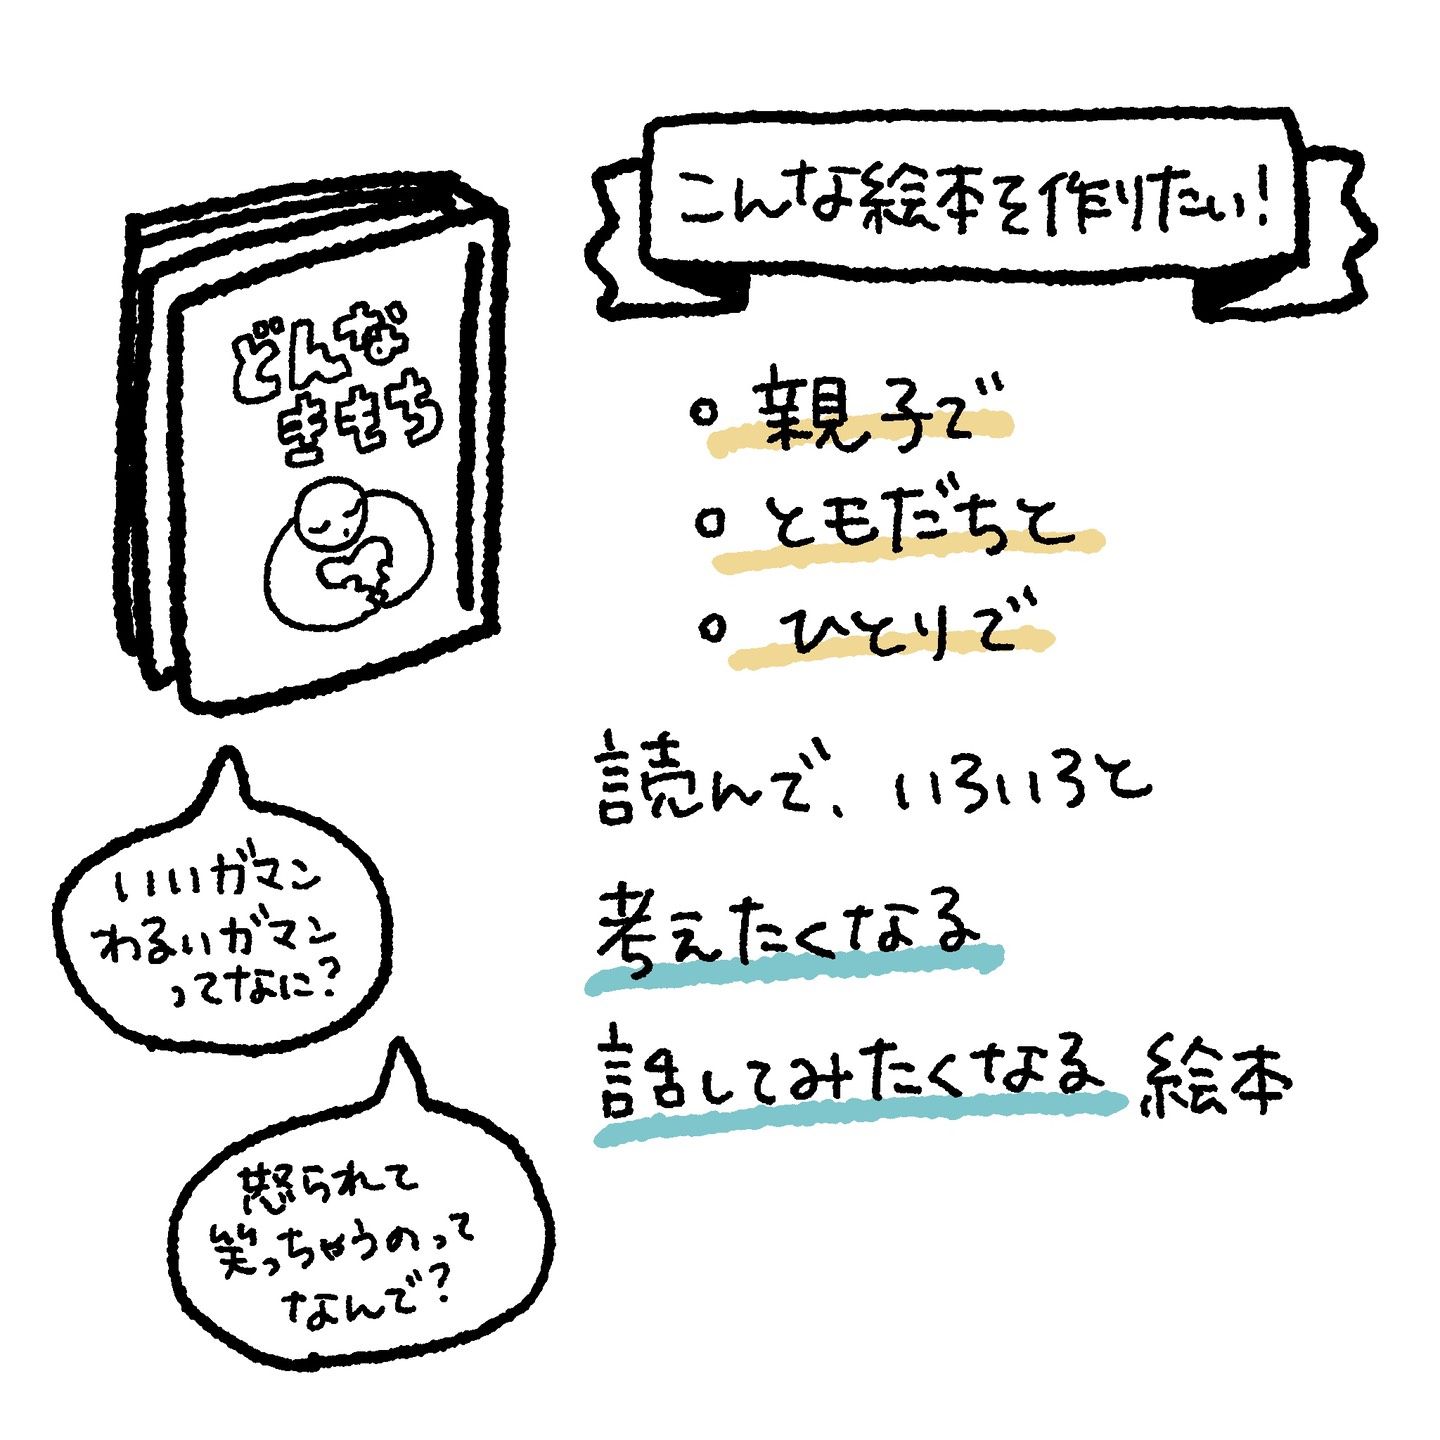 こんな絵本を作りたい!
どんな
きもち
。親子で
。ともだちと
。ひとりで
読んで、いろいろと
考えたくなる
話してみたくなる絵本
いいガマン
わるいガマン
ってなに?
怒られて
笑っちゃうのって
なんで?